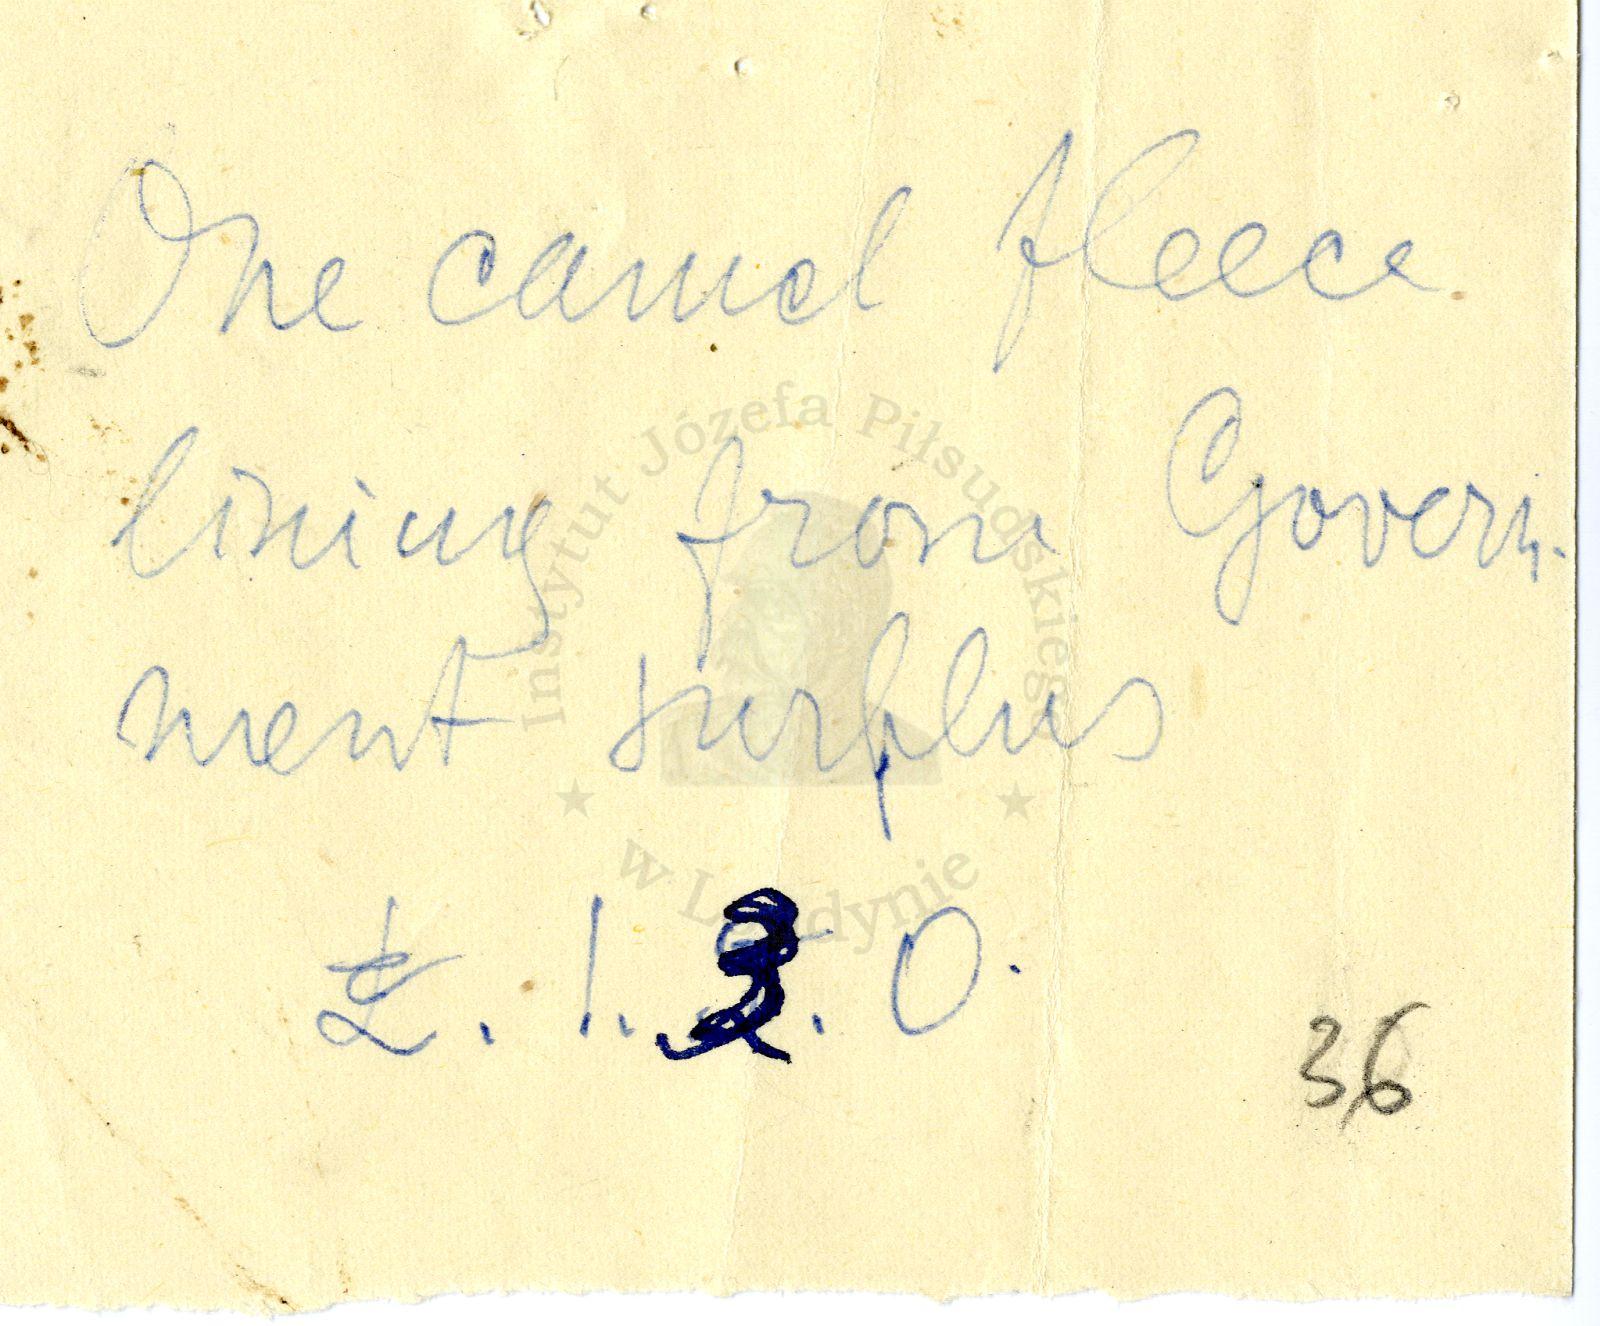 One camel fleece
lining from Govern-
ment surplus
£. 1. 3. 0.
36
Instytut Józefa Piłsudskiego
w Londynie